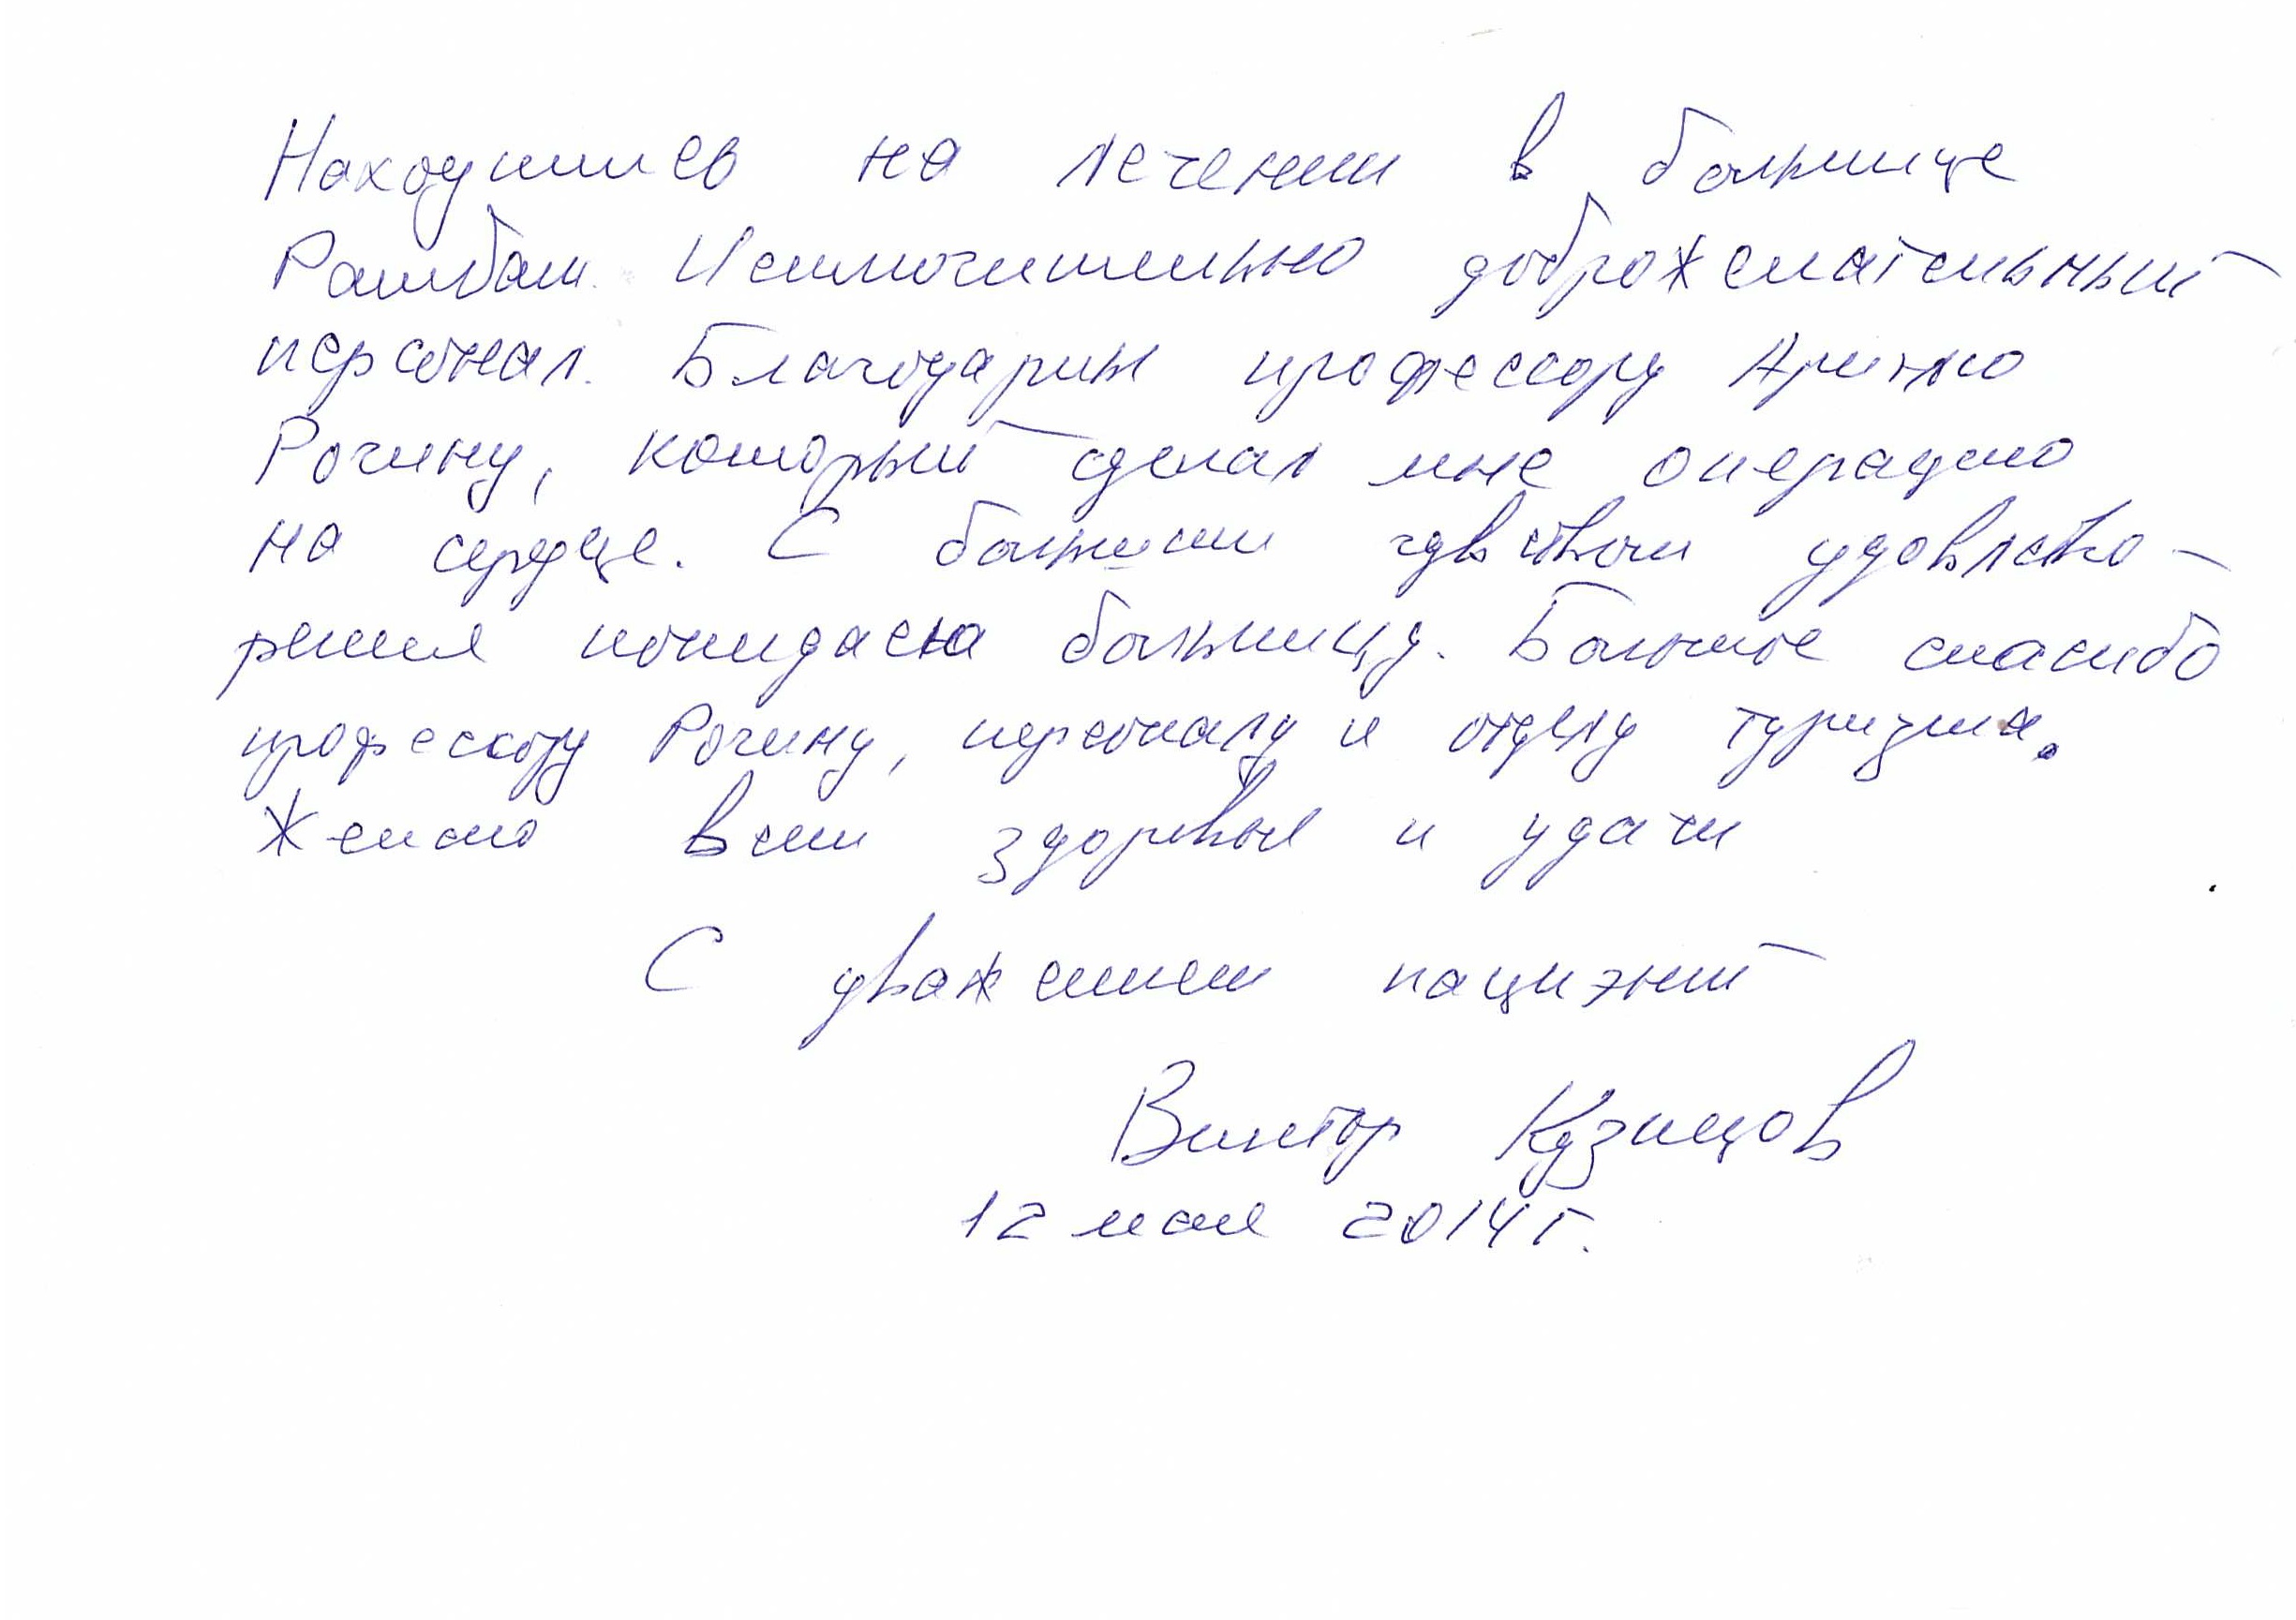 Находились на лечении в больнице
Рамбам. Исключительно доброжелательный
персонал. Благодарны профессору Ариэлю
Рогину, который сделал мне операцию
на сердце. С большим чувством удовлетво-
рения покидаем больницу. Большое спасибо
профессору Рогину, персоналу и отделу туризма.
Желаю всем здоровья и удачи
С уважением пациэнт
Виктор Кузнецов
12 мая 2014 г.